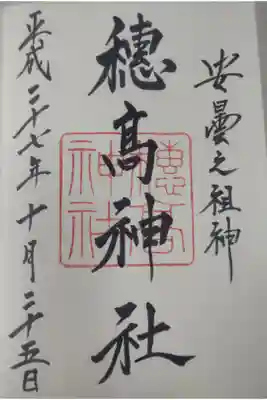 安曇之祖神
穂高神社
平成二十七年十月二十五日
穂高神社